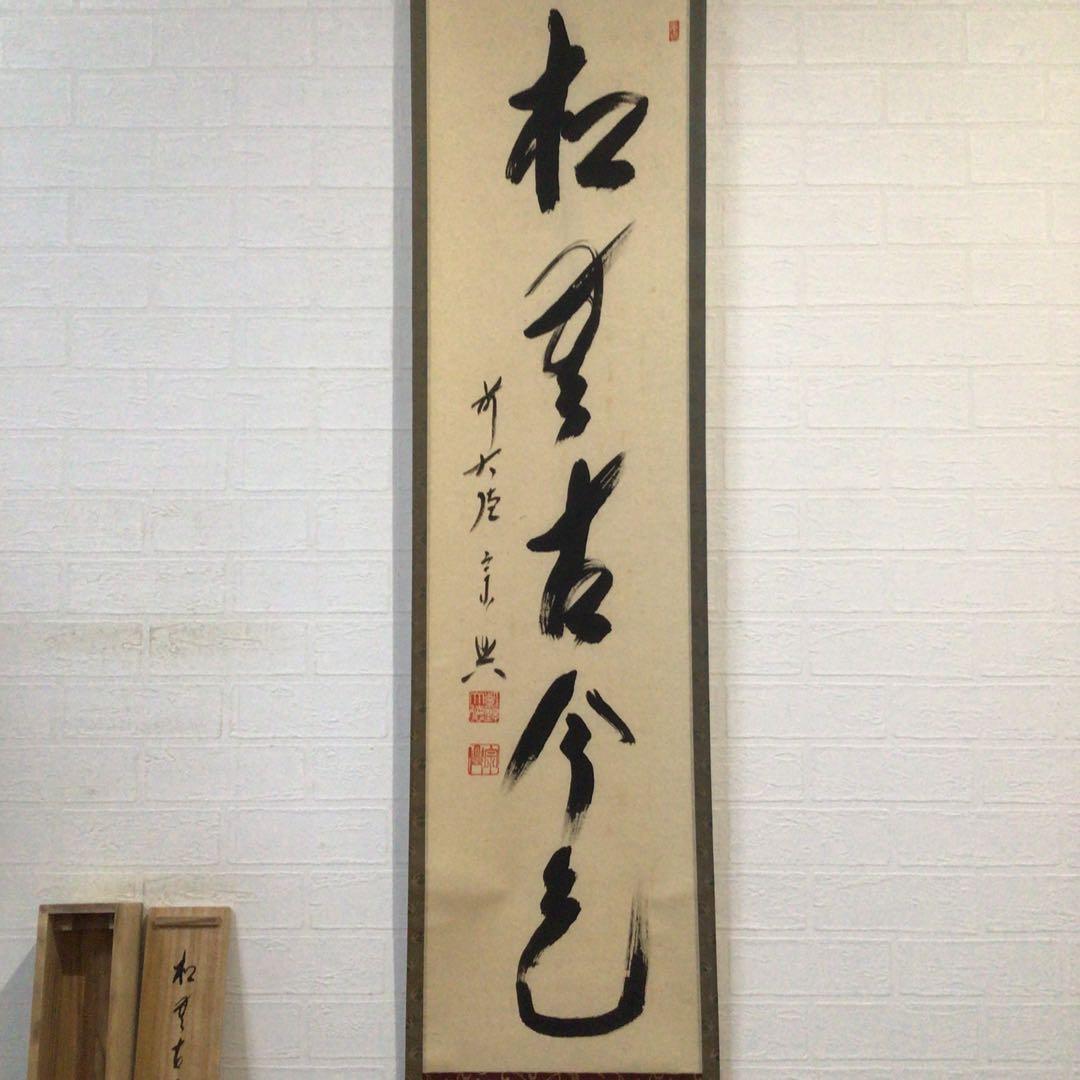 松無古今色
前大徳宗興
松無古